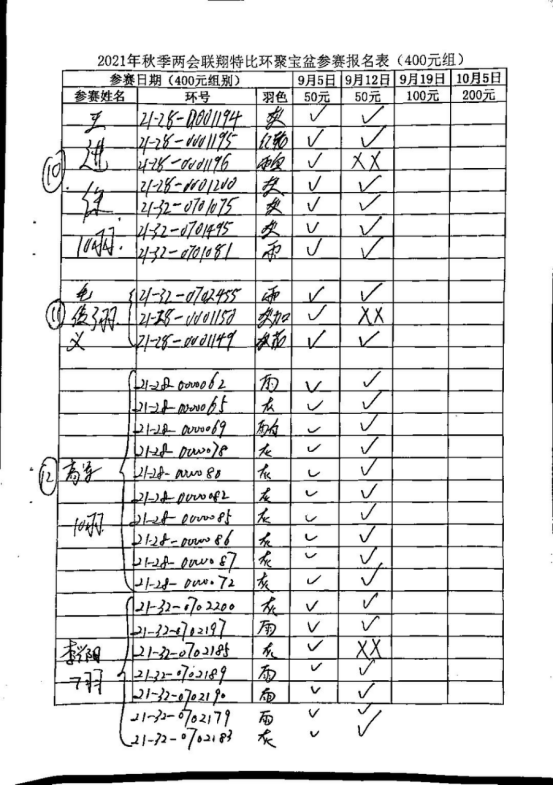 2021年秋季两会联翔特比环聚宝盆参赛报名表（400元组）
参赛日期（400元组别） 9月5日 9月12日 9月19日 10月5日
参赛姓名 环号 羽色 50元 50元 100元 200元
王 21-28-0001194 灰 ✓ ✓
21-28-0001195 ✓ ✓
⑩ 进 21-28-0001196 ✓ XX
21-28-0001200 灰 ✓ ✓
21-32-0701075 灰 ✓ ✓
21-32-0701495 灰 ✓ ✓
10羽. 21-32-0701081 雨 ✓ ✓
21-32-0702455 雨 ✓ ✓
⑪ 3羽 21-28-0001150 ✓ XX
义 21-28-0001149 ✓ ✓
21-28-0000062 雨 ✓ ✓
21-28-0000065 灰 ✓ ✓
21-28-0000069 ✓ ✓
21-28-0000078 灰 ✓ ✓
⑫ 21-28-0000080 灰 ✓ ✓
21-28-0000082 灰 ✓ ✓
10羽 21-28-0000085 灰 ✓ ✓
21-28-0000086 灰 ✓ ✓
21-28-0000087 灰 ✓ ✓
21-28-0000072 灰 ✓ ✓
21-32-0702200 灰 ✓ ✓
21-32-0702197 雨 ✓ ✓
21-32-0702185 灰 ✓ XX
7羽 21-32-0702189 雨 ✓ ✓
21-32-0702190 雨 ✓ ✓
21-32-0702179 雨 ✓ ✓
21-32-0702183 灰 ✓ ✓